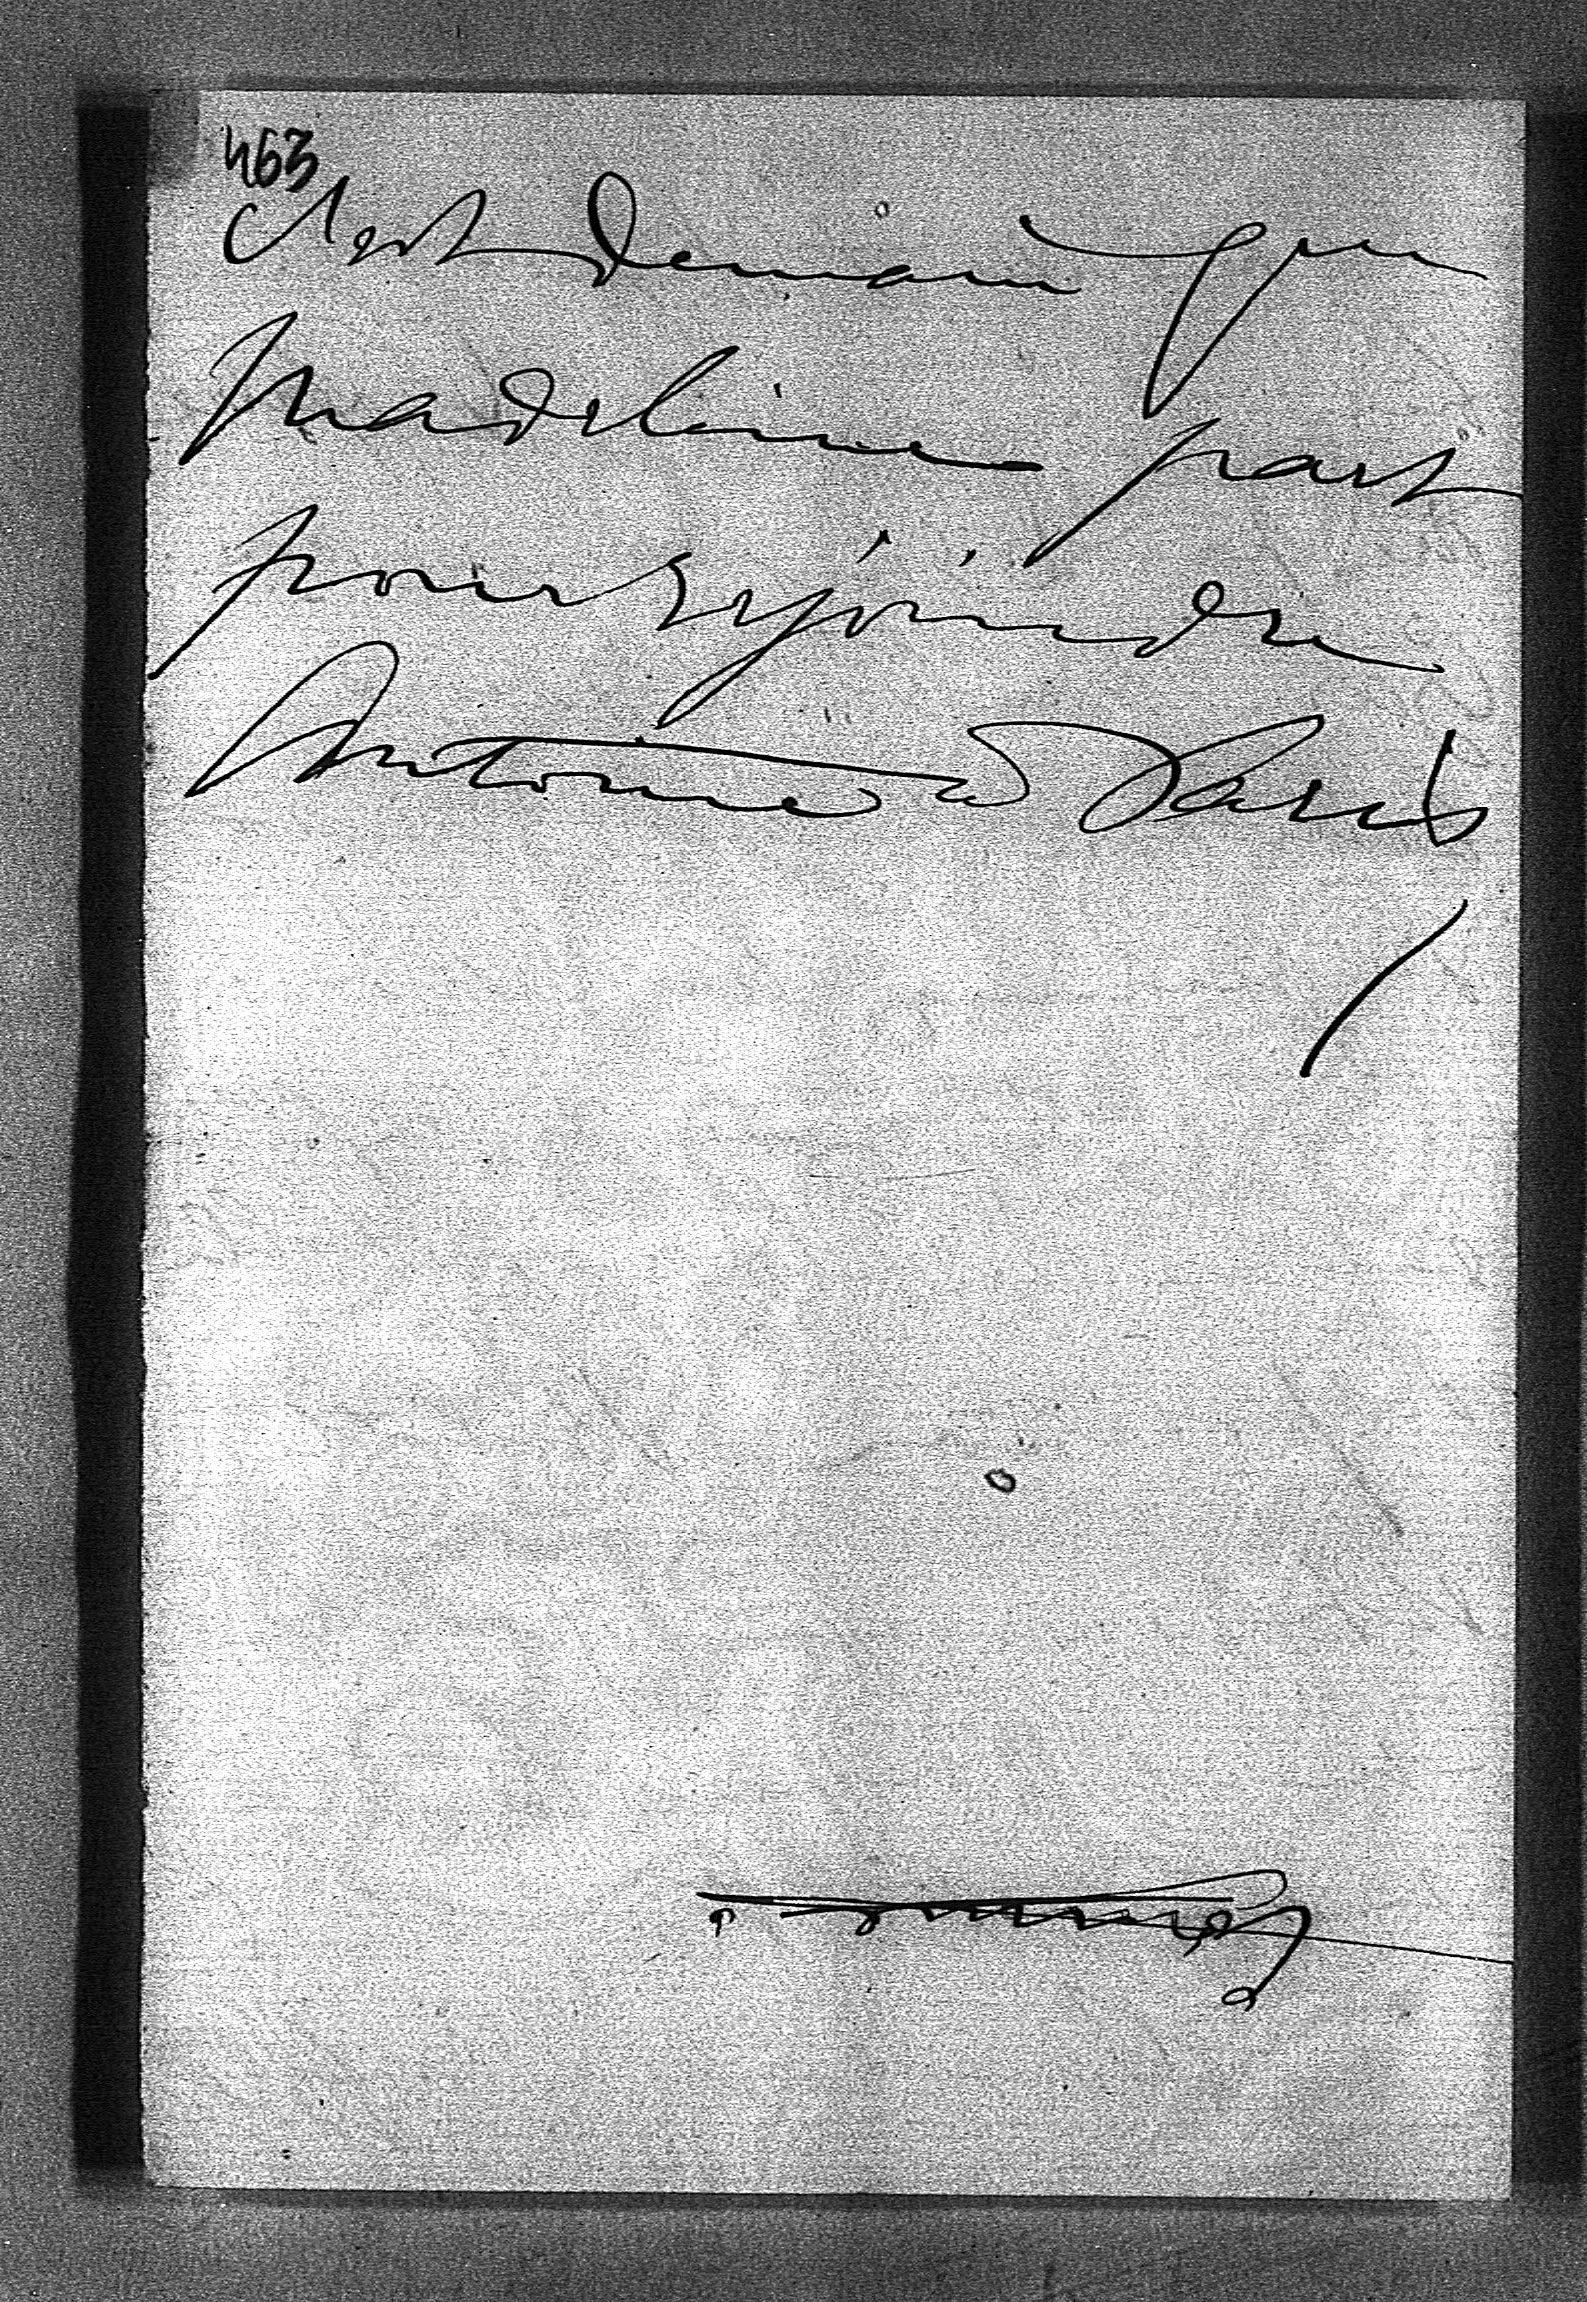 463
C'est demain que
Madeleine part
pour rejoindre
Antoine à Paris